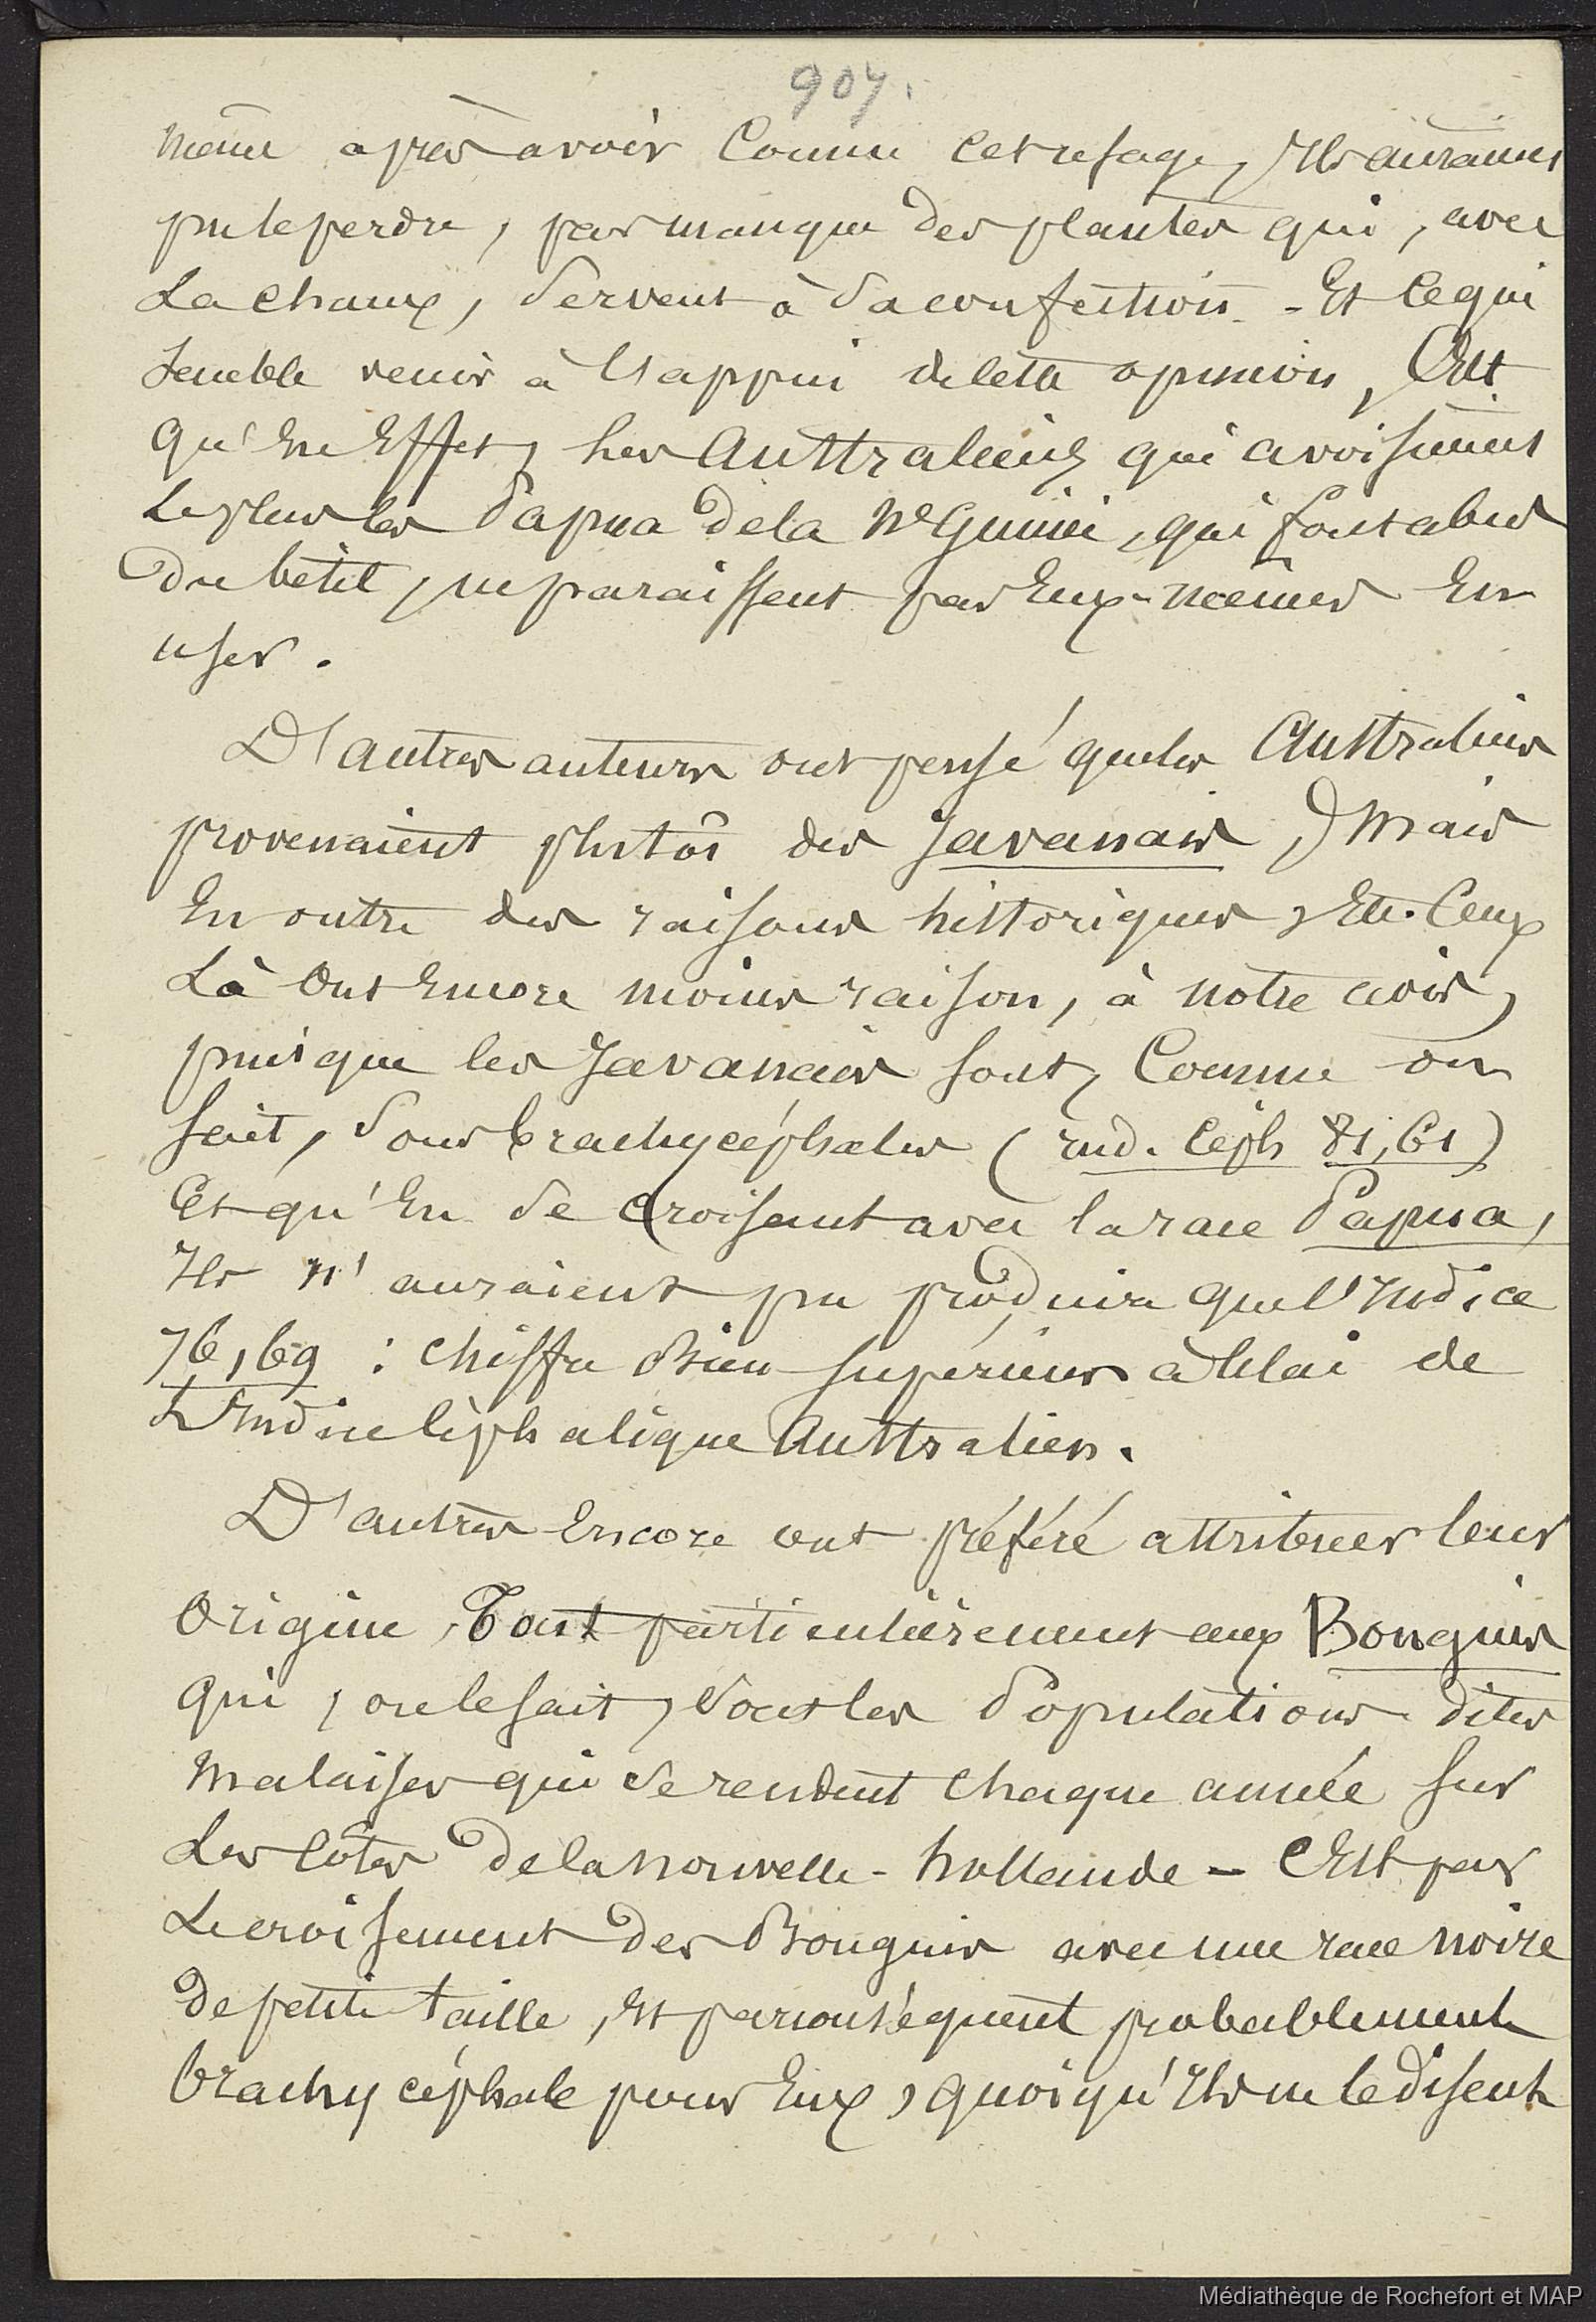 907.
même après avoir connu cet usage, Ils auraient
pu le perdre, par manque des plantes qui, avec
La chaux, servent à sa confection - Et ce qui
semble venir à l'appui de cette opinion, C'est
qu'En Effet, les Australiens qui avoisinent
Le plus les Papua de la Nle Guinée, qui font abus
du bétel, ne paraissent pas Eux-mêmes En
user.
D'autres auteurs ont pensé que les Australiens
provenaient plutôt des Javanais, mais
En outre des raisons historiques, Etc. Ceux
Là ont Encore moins raison, à notre avis,
puisque les Javanais sont, Comme on
sait, sous brachycéphales (ind. Céph 81,61)
Et qu'En se croisant avec la race Papua,
Ils n'auraient pu produire que l'Indice
76,69 : chiffre Bien supérieur à Celui de
L'Indice Céphalique Australien.
D'autres Encore ont préféré attribuer leur
Origine, Tout particulièrement aux Bouguis
qui, on le sait, sont les Populations dites
Malaises qui se rendent chaque année sur
Les Côtes de la Nouvelle-hollande - C'Est par
Le croisement des Bouguis avec une race noire
de petite taille, Et par conséquent probablement
brachycéphale pour Eux, quoiqu'Ils ne le disent
Médiathèque de Rochefort et MAP